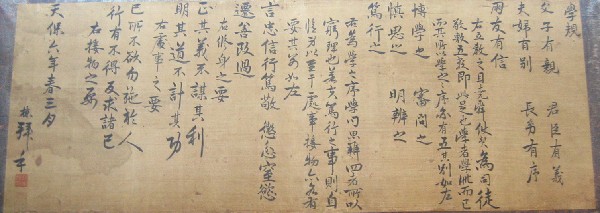 學規
父子有親　君臣有義
夫婦有別　長幼有序
朋友有信
右五教之目堯舜使契為司徒
敬敷五教即此是也學者學此而已
而其所以學之之序亦有五焉其別如左
博學之　審問之
慎思之　明辨之
篤行之
右為學之序學問思辨四者所以
窮理也若夫篤行之事則自
修身以至于處事接物亦各有
要其別如左
言忠信行篤敬懲忿窒慾
遷善改過
右修身之要
正其義不謀其利
明其道不計其功
右處事之要
己所不欲勿施於人
行有不得反求諸己
右接物之要
天保六年春三月